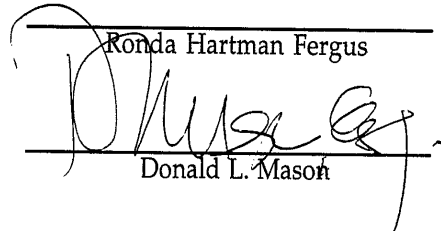 Ronda Hartman Fergus
Donald L. Mason